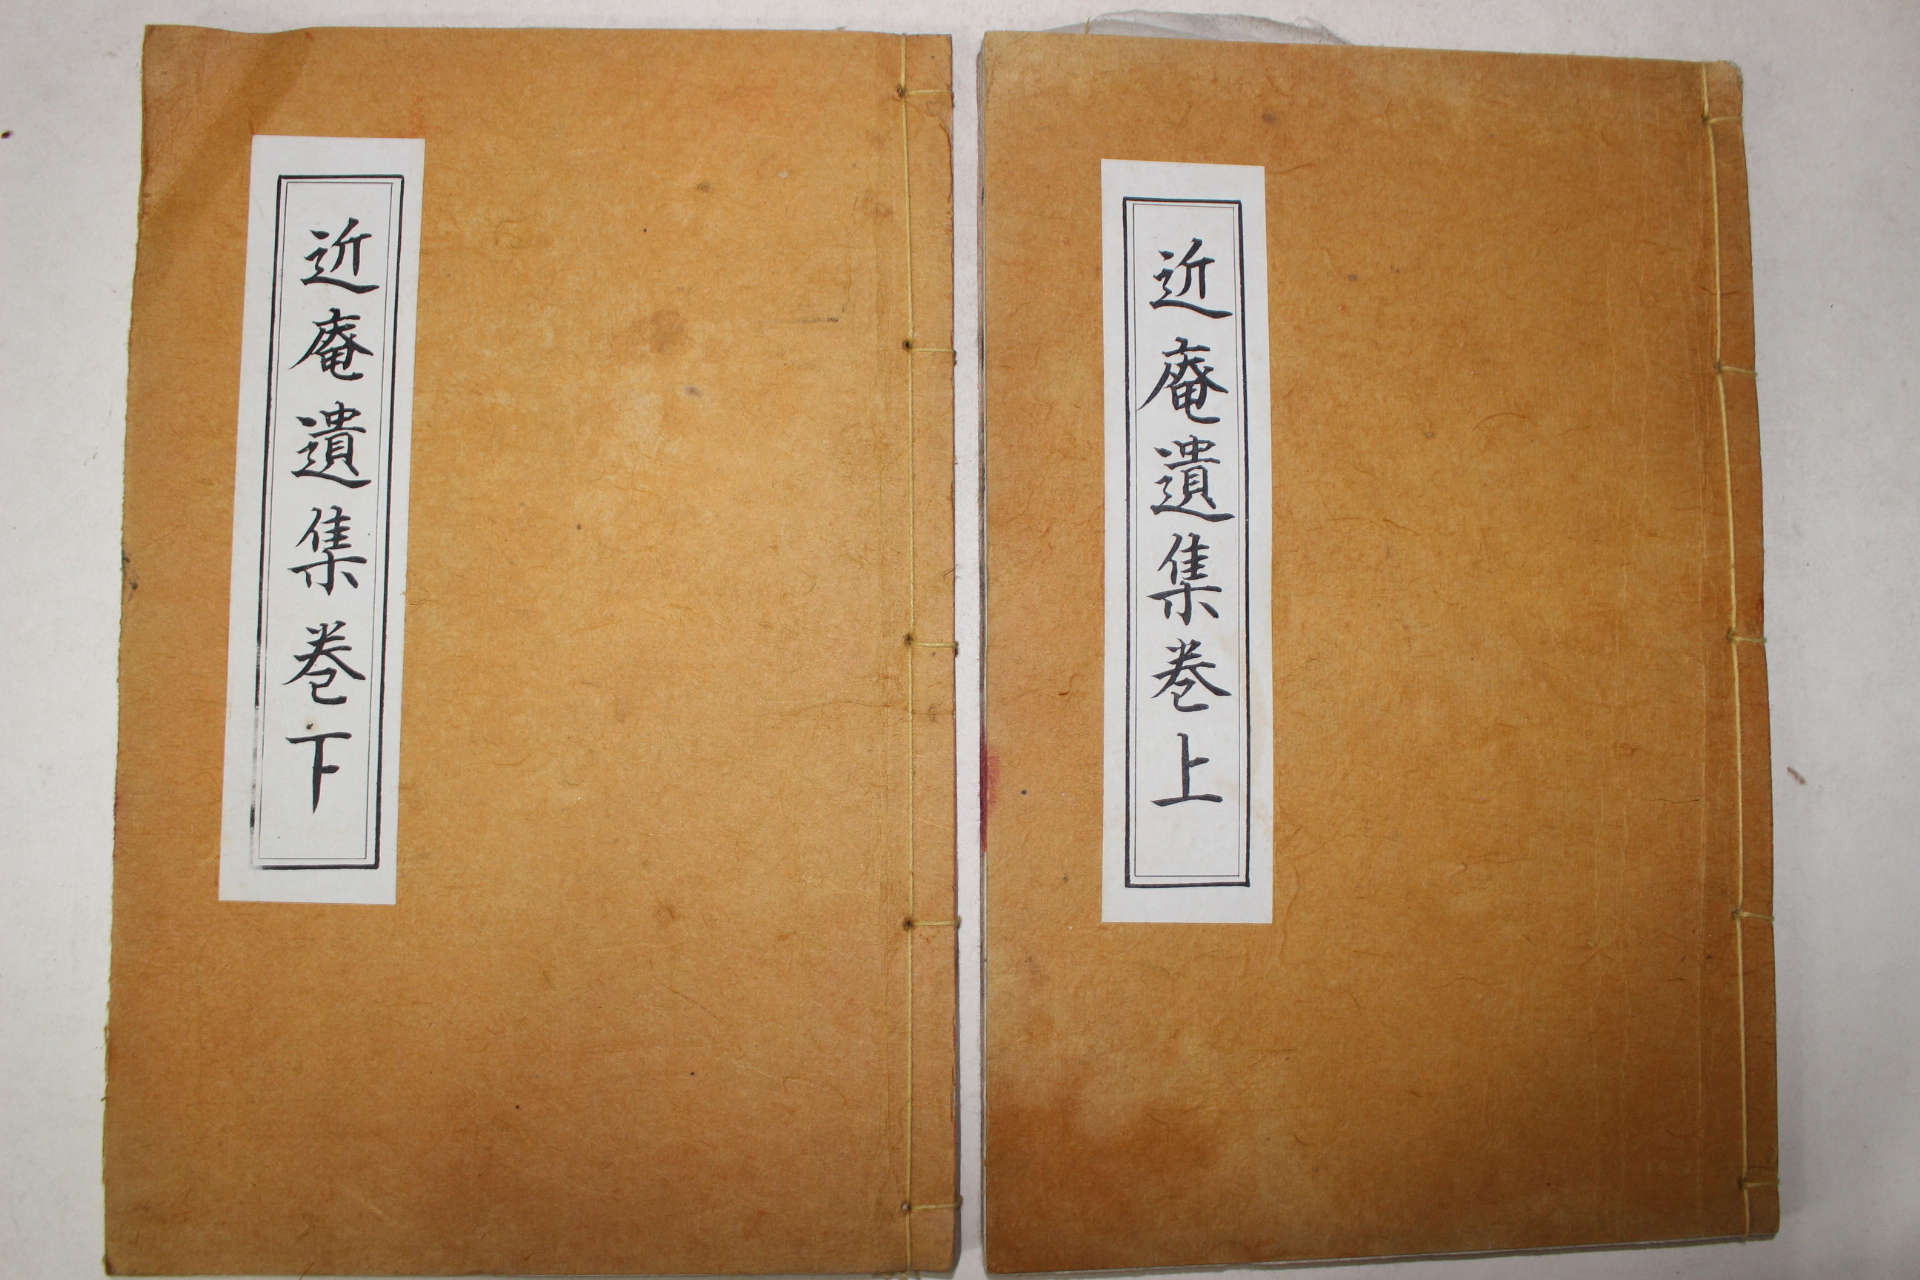 近庵遺集卷上
近庵遺集卷下